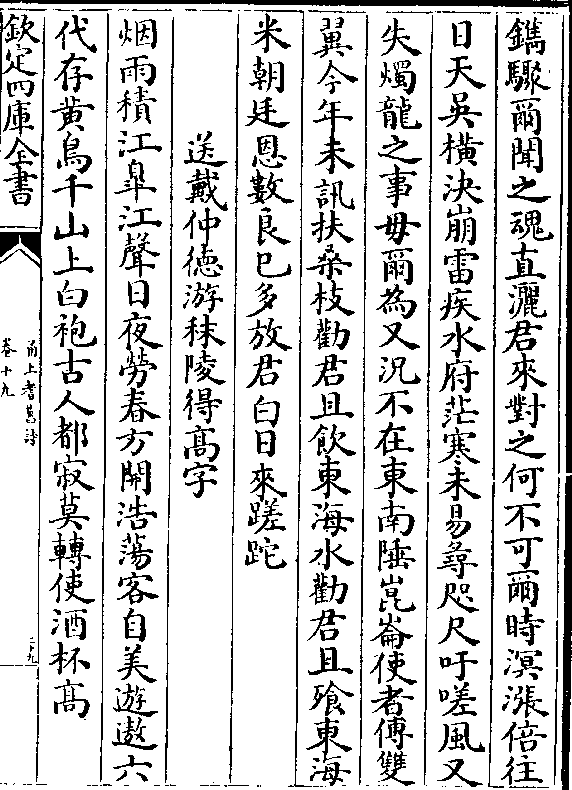 鐫驟爾聞之魂直灑君來對之何不可爾時溟漲倍往
日天吳橫決崩雷疾水府茫寒未易尋咫尺吁嗟風又
失燭龍之事毋爾為又況不在東南陲崑崙使者傅雙
翼今年未訊扶桑枝勸君且飲東海水勸君且飱東海
米朝廷恩數良已多放君白日來蹉跎
送戴仲德游秣陵得髙字
烟雨積江臯江聲日夜勞春方開浩蕩客自美遊遨六
代存黄鳥千山上白袍古人都寂莫轉使酒杯髙
欽定四庫全書
甬上耆舊詩
卷十九
二九